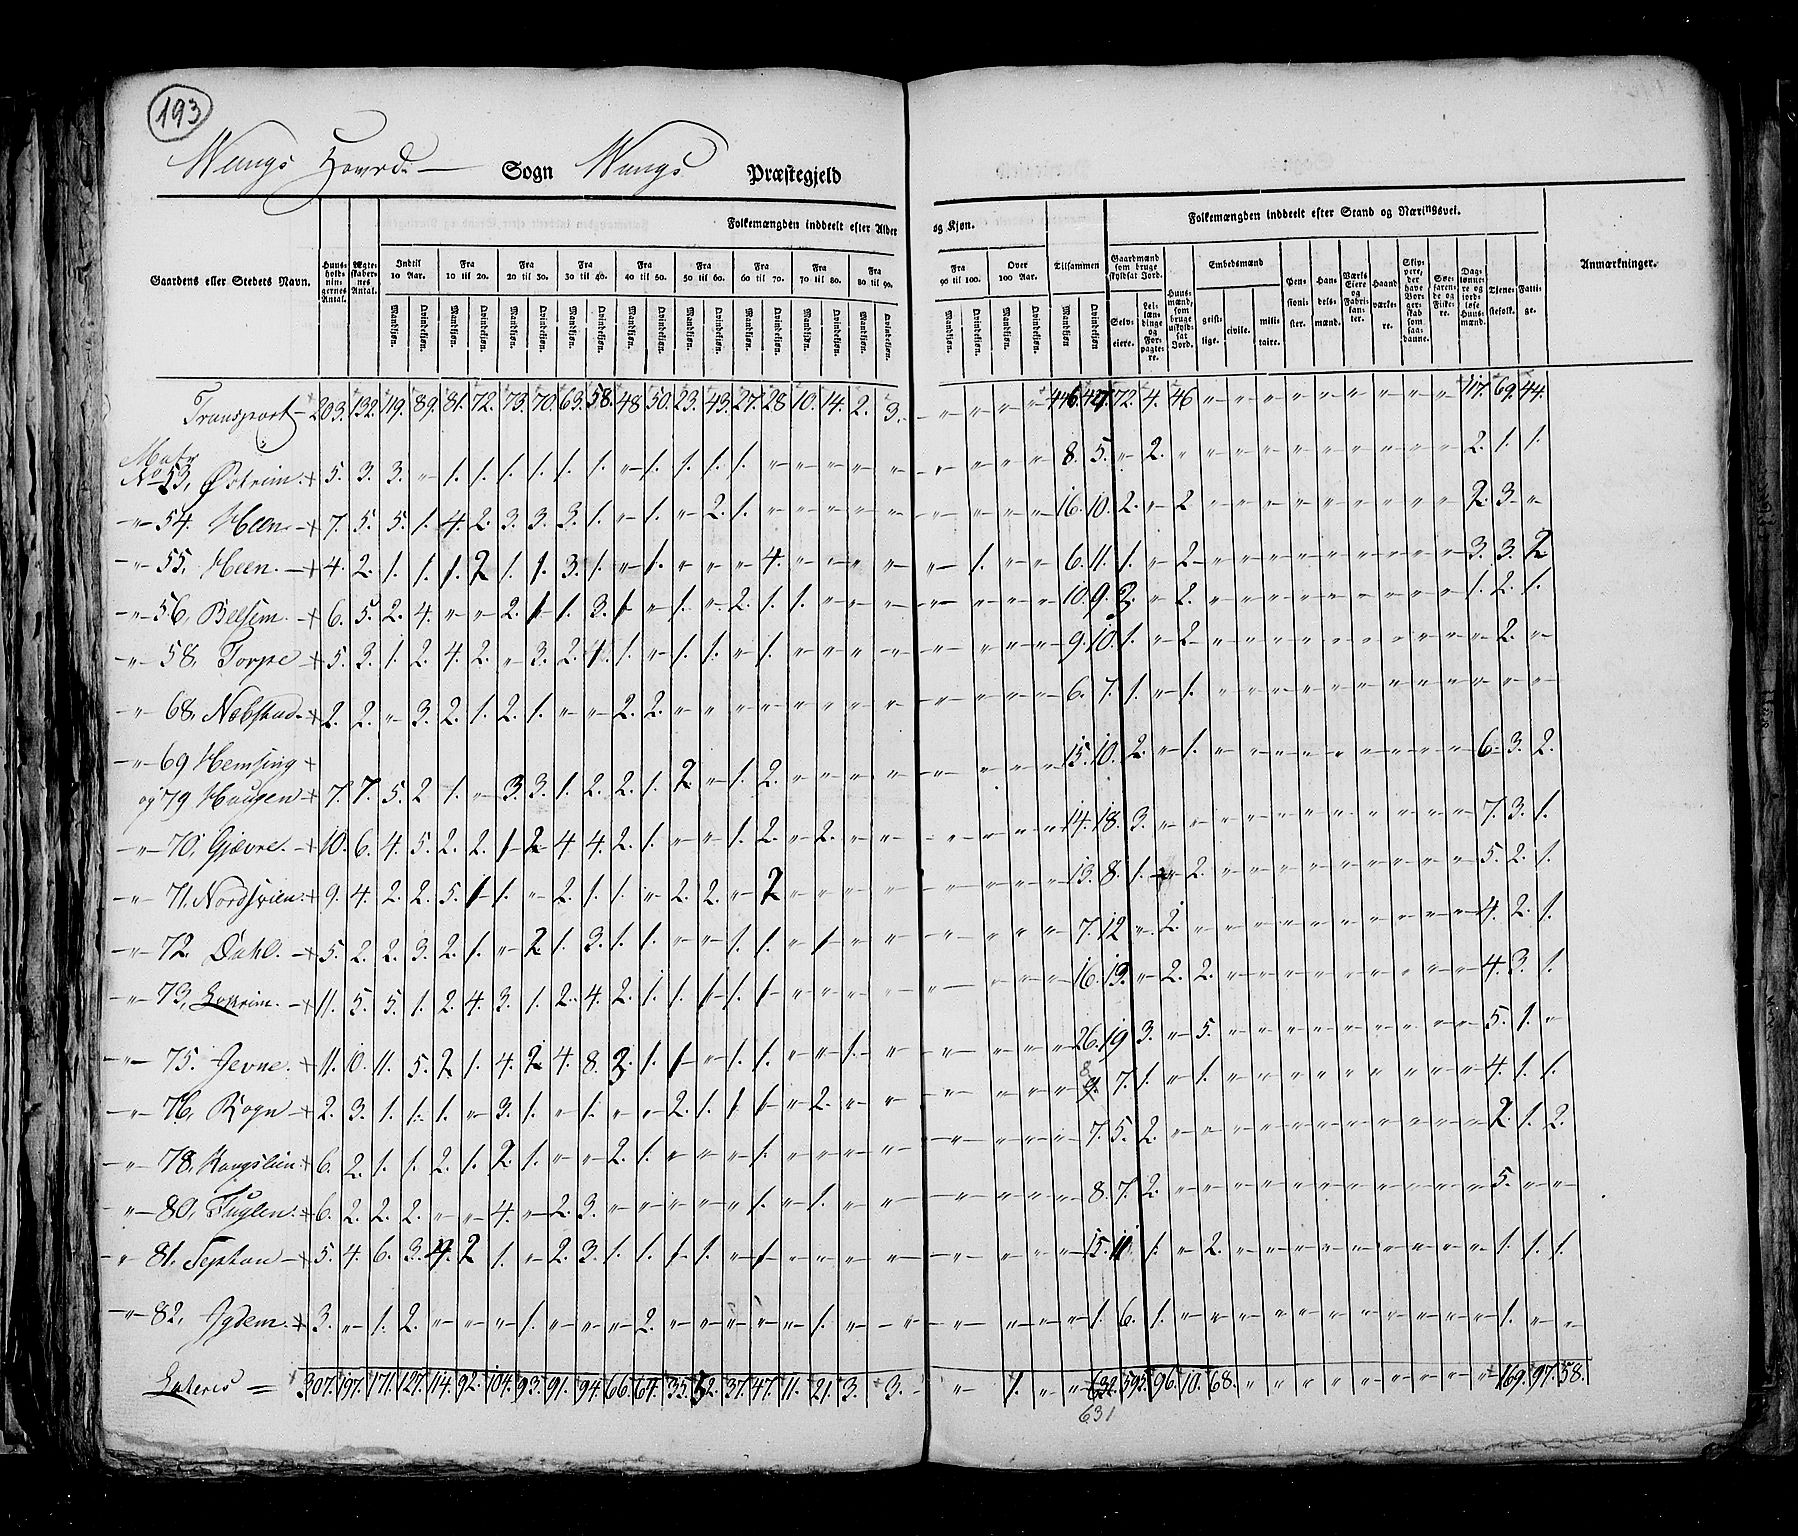 193
Wangs Hoved Sogn Wangs Præstegjeld
Folkemængden inddeelt efter Alder og Kjøn.
Folkemængden inddeelt efter Stand og Næringsvei.
Gaardens eller Stedets Navn. Huusholdningernes Antal. Ægteskabernes Antal. Indtil 10 Aar. Fra 10 til 20. Fra 20 til 30. Fra 30 til 40. Fra 40 til 50. Fra 50 til 60. Fra 60 til 70. Fra 70 til 80. Fra 80 til 90. Fra 90 til 100. Over 100 Aar. Tilsammen Gaardmænd som bruge skyldsat Jord. Huusmænd, som bruge uskyldsat Jord. Embedsmænd Pensionister. Handelsmænd. Værks Eiere og Fabrikanter. Haandværkere. Skippere, der have Borgerskab som saadanne. Søefarende og Fiskere. Daglønnere og jordløse Huusmænd. Tjenestefolk. Fattige. Anmærkninger.
Mandkjøn. Qvindekjøn. Mandkjøn. Qvindekjøn. Mandkjøn. Qvindekjøn. Mandkjøn. Qvindekjøn. Mandkjøn. Qvindekjøn. Mandkjøn. Qvindekjøn. Mandkjøn. Qvindekjøn. Mandkjøn. Qvindekjøn. Mandkjøn. Qvindekjøn. Mandkjøn. Qvindekjøn. Mandkjøn. Qvindekjøn. Mandkjøn Qvindekjøn Selveiere. Leilændinge og Forpagtere. geistlige. civile. militaire.
Transport 203. 132. 119. 89. 81. 72. 73. 70. 63. 58. 48. 50. 23. 43. 27. 28 10. 14. 2. 3. " " " " 446. 427. 72. 4. 46 " " " " " " " " " 117. 69. 44.
Matr
No 53, Østrim. 5. 3. 3. " 1. 1. 1. 1. 1. 1. " 1. 1. 1. 1. " " " " " " " " " 8. 5. " 2. " " " " " " " " " " 2. 1. 1.
" 54. Heen 7. 5. 5. 1. 4. 2. 3. 3. 3. 1. " 1. " 2. 1. " " " " " " " " " 16. 10. 2. " 2 " " " " " " " " " 2. 3. "
" 55, Heen. 4. 2. 1. 1. 1. 2 1. 1. 3. 1. " 1. " " " 4. " " " " " 1. " " 6. 11. 1. " 2 " " " " " " " " " 3. 3. 2
" 56, Belsem. 6. 5. 2. 4. " " 2. 1 1. 3. 1 " 1. " 2. 1. 1. " " " " " " " 10. 9. 2. " 2. " " " " " " " " " 1. 2. 1.
" 58, Torpe 5. 3. 1. 2. 4. 2. " 3. 2. 1. 1. " 1. 1. " 1. " " " " " " " " 9. 10. 1. " 2 " " " " " " " " " " 2. "
" 68, Nebstad. 2. 2. " 3. 2. 1. 2. 1. " " 2. 2. " " " " " " " " " " " " 6. 7. 1. " 1. " " " " " " " " " " " "
" 69 Hemsing
og 79 Haugen 7. 7. 5. 2 1. " 3. 3. 1. 2. 2. 1. 2. " 1. 2. " " " " " " " " 15. 10. 2. " 1. " " " " " " " " " 6. 3. 2.
" 70, Gjævre. 10. 6. 4. 5. 2. 2. 1 2. 4. 4. 2. 1. " " 1. 2. " 2. " " " " " " 14. 18. 3. " " " " " " " " " " " 7. 3. 1.
" 71. Nordsvien. 9. 4. 2. 2. 5. 1 1. " 2. 1. 1. " 2. 2. " 2 " " " " " " " " 13. 8. 1. " 2. " " " " " " " " " 5. 2. 1.
" 72. Dahl. 5. 2. 2. 3. 2. 1. " 2. 1. 3. 1. 1. " " 1. 1. " 1 " " " " " " 7. 12 " 2. " " " " " " " " " " 4. 2. 1.
" 73, 11. 5. 5. 1. 2. 4. 3. 1. 2. 4. 2. 1. 1. 1 1. 1 " " " " " " " " 16. 13. " 2. 2. " " " " " " " " " 4. 3. 1.
" 75. Jevne. 11. 10. 11. 5. 2. 1. 4. 2 4. 8. 3. 1. 1 " 1. 1. " " 1. " " " " " 26. 19 3. " 5. " " " " " " " " " 5. 1. "
8
" 76, Rogn 2. 3. 1. 1. 1. " 3. 1. " 1. " " 2. 1. 1 1. " 2. " " " " " " 9. 7. 1. " 1. " " " " " " " " " 4. 1. 1.
" 78, 6. 2. 1. 1. 2. 1. 2. 1. " " 2. 1. " " " 1. " " " " " " " " 7. 5. 2. " " " " " " " " " " " 2. 1. 2.
" 80, Fuglen. 6. 2. 2. 2. " " 4. " 2. 3. " " " " " 1. " 1. " " " " " " 8. 7. 2. " " " " " " " " " " " 5. " "
" 81. 5. 4. 6. 3. 4. 2 1. " 2. 3. 1. 1. 1 1. " 1 " " " " " " " " 15. 11 1. " 2. " " " " " " " " " 1. 1. 1.
" 82, Igdem. 3. " 1. 2. " " " 1. " " " 2. " " " " " 1. " " " " " " 1. 6. 1. " " " " " " " " " " " 1. " "
Lateris = 307. 197. 171. 127. 114. 92. 104. 93. 91. 94. 66. 64. 35. 52. 37. 47. 11. 21. 3. 3. " 1. " " 632. 595. 96. 10. 68. " " " " " " " " " 169. 97. 58.
631